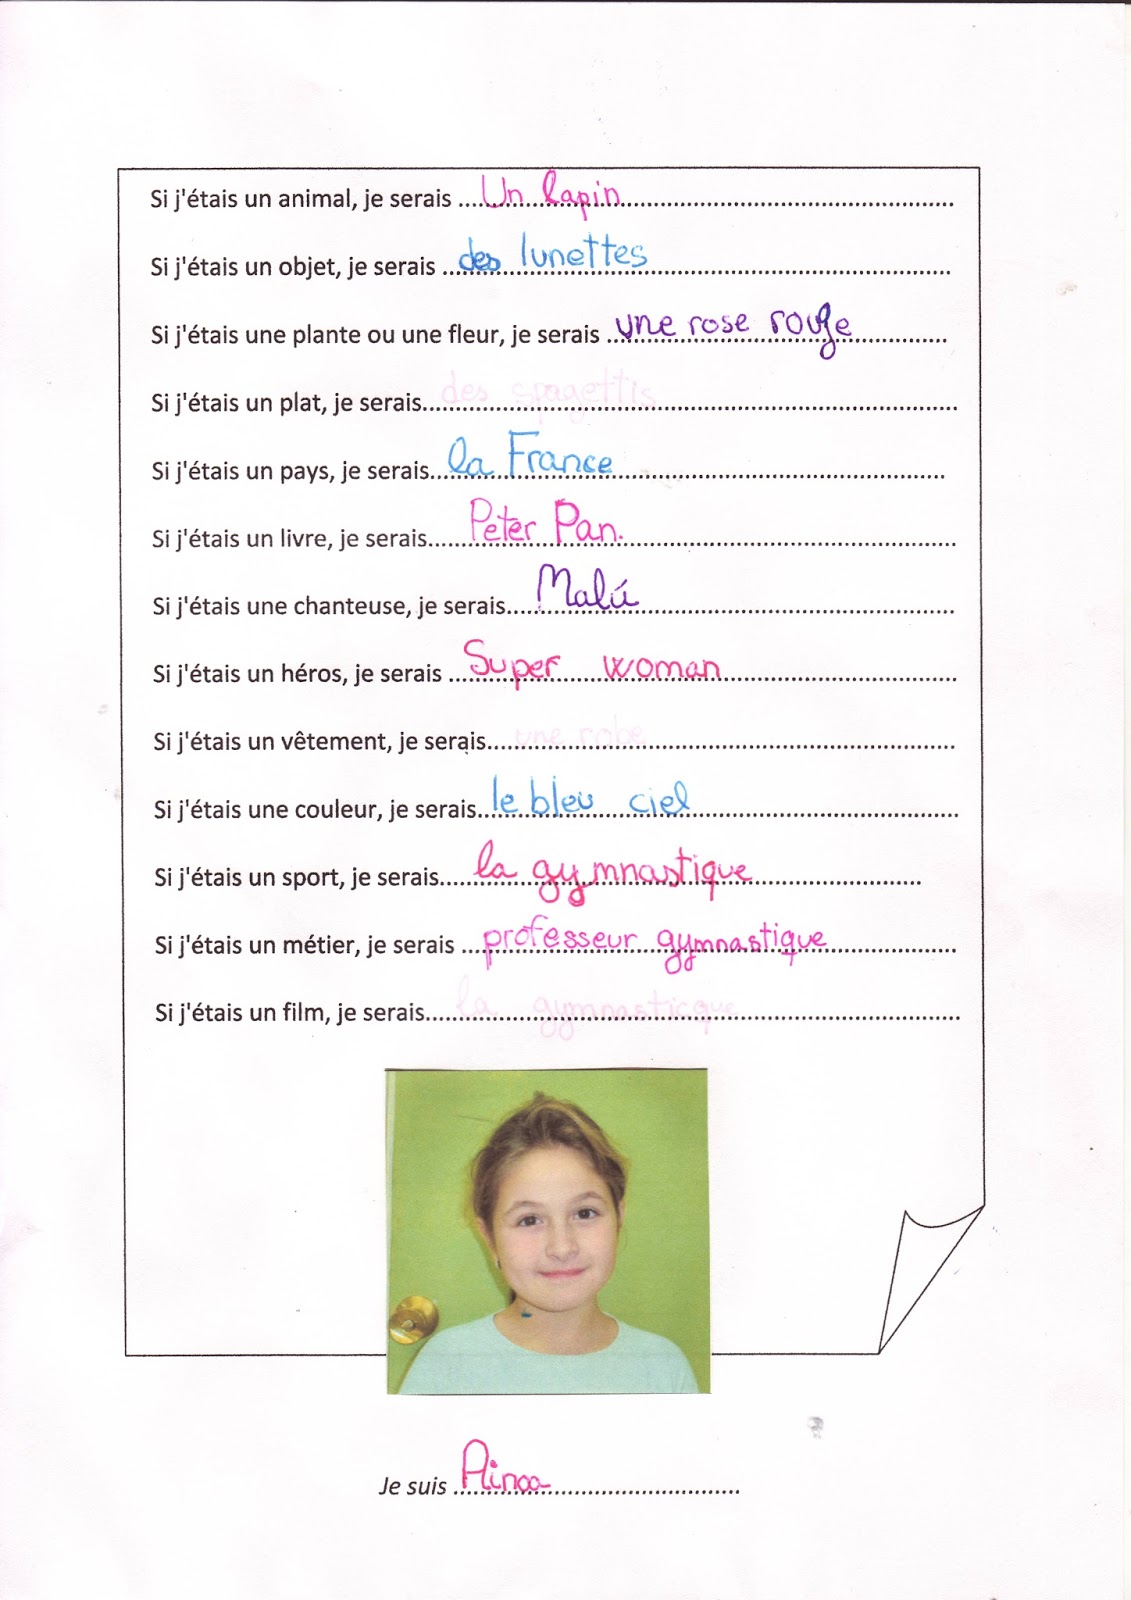 Si j'étais un animal, je serais .....Un lapin.....
Si j'étais un objet, je serais .....des lunettes.....
Si j'étais une plante ou une fleur, je serais .....une rose rouge.....
Si j'étais un plat, je serais.....des spagettis.....
Si j'étais un pays, je serais.....la France.....
Si j'étais un livre, je serais.....Peter Pan.....
Si j'étais une chanteuse, je serais.....Malú.....
Si j'étais un héros, je serais .....Super woman.....
Si j'étais un vêtement, je serais.....une robe.....
Si j'étais une couleur, je serais.....le bleu ciel.....
Si j'étais un sport, je serais.....la gymnastique.....
Si j'étais un métier, je serais .....professeur gymnastique.....
Si j'étais un film, je serais.....la gymnasticque.....
Je suis .....Ainoa.....